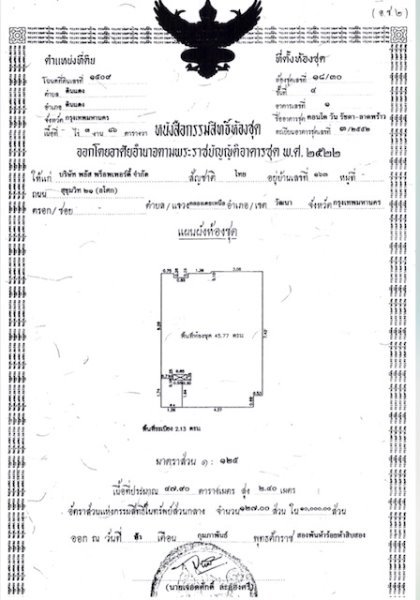 (อ.ช.๒)
ตำแหน่งที่ดิน
ที่ตั้งห้องชุด
โฉนดที่ดินเลขที่ ๑๕๐๙
ห้องชุดเลขที่ ๑๘/๓๐
ตำบล ดินแดง
ชั้นที่ ๔
อำเภอ ดินแดง
อาคารเลขที่ ๑
จังหวัด กรุงเทพมหานคร
ชื่ออาคารชุด คอนโด วัน รัชดา-ลาดพร้าว
เนื้อที่ ไร่ ๓ งาน ตารางวา
ทะเบียนอาคารชุด ๓/๒๕๕๒
หนังสือกรรมสิทธิ์ห้องชุด
ออกโดยอาศัยอำนาจตามพระราชบัญญัติอาคารชุด พ.ศ. ๒๕๒๒
ให้แก่ บริษัท พลัส พร็อพเพอร์ตี้ จำกัด สัญชาติ ไทย อยู่บ้านเลขที่ ๑๖๓ หมู่ที่
ถนน สุขุมวิท ๒๑ (อโศก)
ตรอก/ซอย ตำบล/แขวง คลองเตยเหนือ อำเภอ/เขต วัฒนา จังหวัด กรุงเทพมหานคร
แผนผังห้องชุด
พื้นที่ห้องชุด 45.77 ตรม
พื้นที่ระเบียง 2.13 ตรม
มาตราส่วน ๑ : ๑๒๕
เนื้อที่ประมาณ ๔๗.๙๐ ตารางเมตร สูง ๒.๔๐ เมตร
อัตราส่วนแห่งกรรมสิทธิ์ในทรัพย์ส่วนกลาง จำนวน ๑๒๗.๐๐ ส่วน ใน ๑๐,๐๐๐.๐๐ ส่วน
ออก ณ วันที่ ห้า เดือน กุมภาพันธ์ พุทธศักราช สองพันห้าร้อยห้าสิบสอง